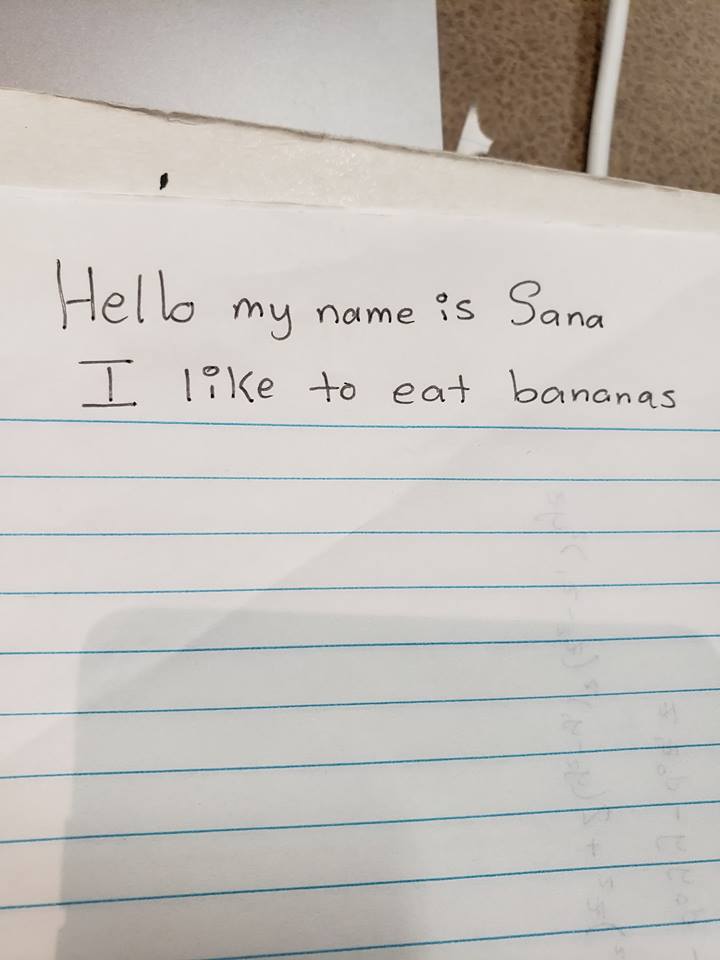 Hello my name is Sana
I like to eat bananas